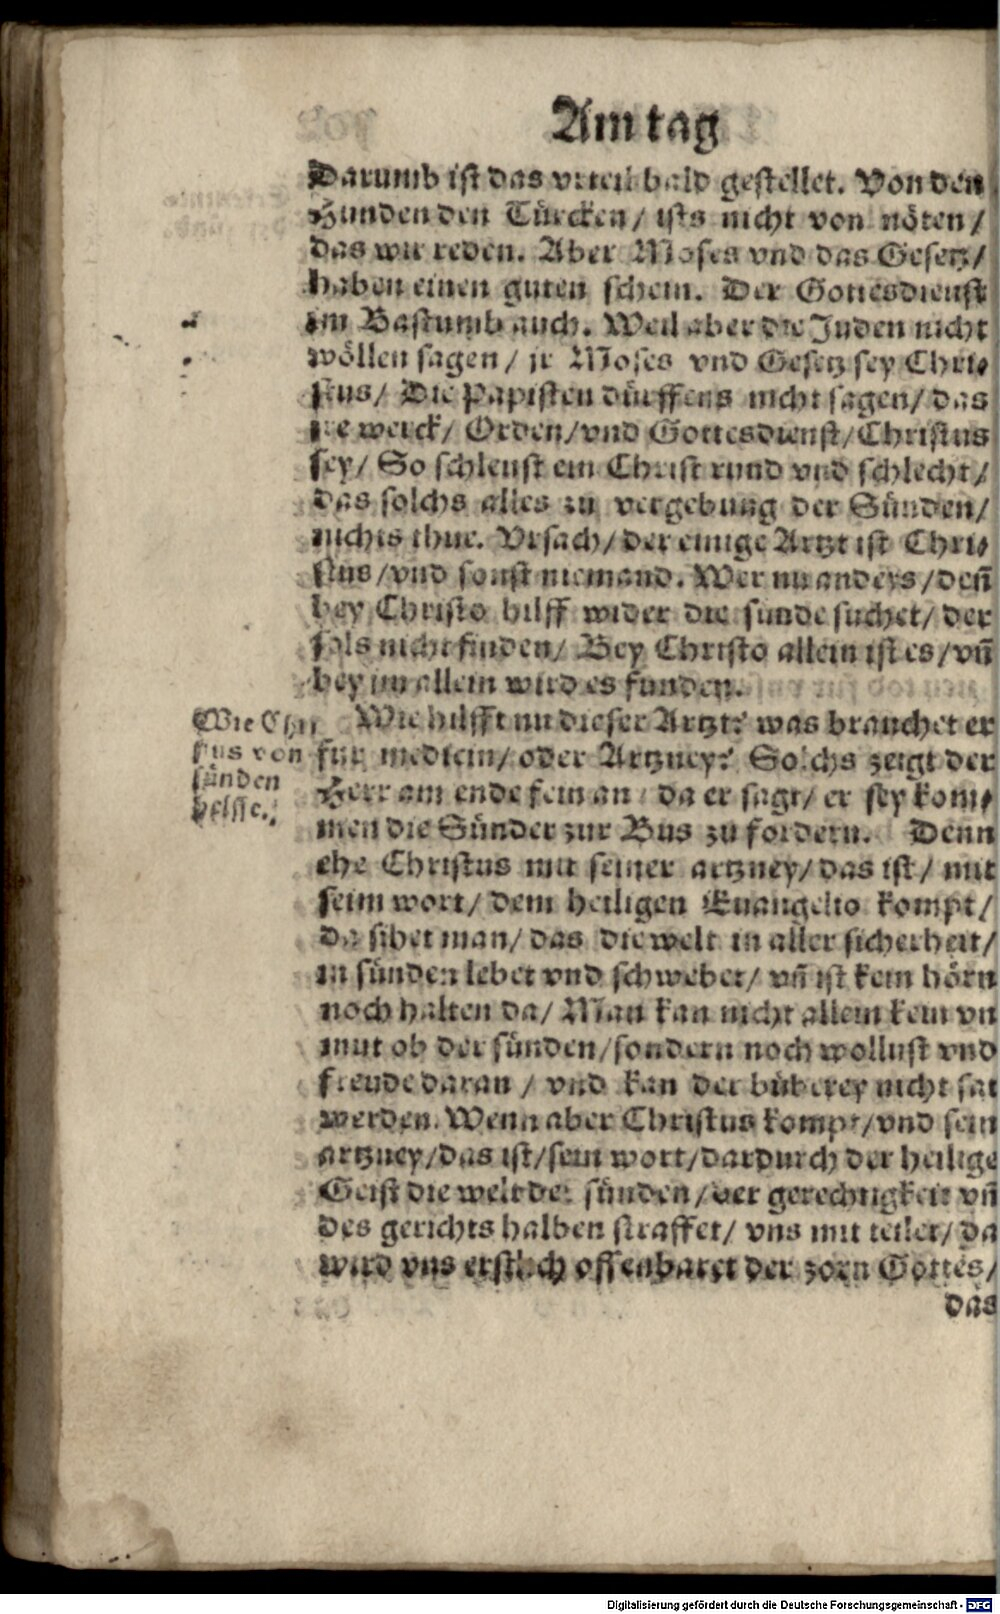 Am tag
Darumb ist das vrteil bald gestellet. Von den
Hunden den Türcken / ists nicht von nöten /
das wir reden. Aber Moses vnd das Gesetz /
haben einen guten schein. Der Gottesdienst
im Bastumb auch. Weil aber die Juden nicht
wöllen sagen / jr Moses vnd Gesetz sey Chri⸗
stus / Die Papisten dürffens nicht sagen / das
jre werck / Orden / vnd Gottesdienst / Christus
sey / So schleust ein Christ rund vnd schlecht /
das solchs alles zu vergebung der Sünden /
nichts thue. Vrsach / der einige Artzt ist Chri⸗
stus / vnd sonst niemand. Wer nu anders / deñ
bey Christo hilff wider die sünde suchet / der
sols nicht finden / Bey Christo allein ist es / vñ
bey jm allein wird es funden.
Wie Chri
stus von
sünden
helffe.
Wie hilfft nu dieser Artzt? was brauchet er
für medicin / oder Artzney? Solchs zeigt der
Herr am ende fein an / da er sagt / er sey kom⸗
men die Sünder zur Bus zu fordern. Denn
ehe Christus mit seiner artzney / das ist / mit
seim wort / dem heiligen Euangelio kompt /
da sihet man / das die welt in aller sicherheit /
in sünden lebet vnd schwebet / vñ ist kein hörn
noch halten da / Man kan nicht allein kein vn
mut ob der sünden / sondern noch wollust vnd
freude daran / vnd kan der büberey nicht sat
werden. Wenn aber Christus kompt / vnd sein
artzney / das ist / sein wort / dardurch der heilige
Geist die welt der sünden / der gerechtigkeit vñ
des gerichts halben straffet / vns mit teilet / da
wird vns erstlich offenbaret der zorn Gottes /
das
Digitalisierung gefördert durch die Deutsche Forschungsgemeinschaft - DFG